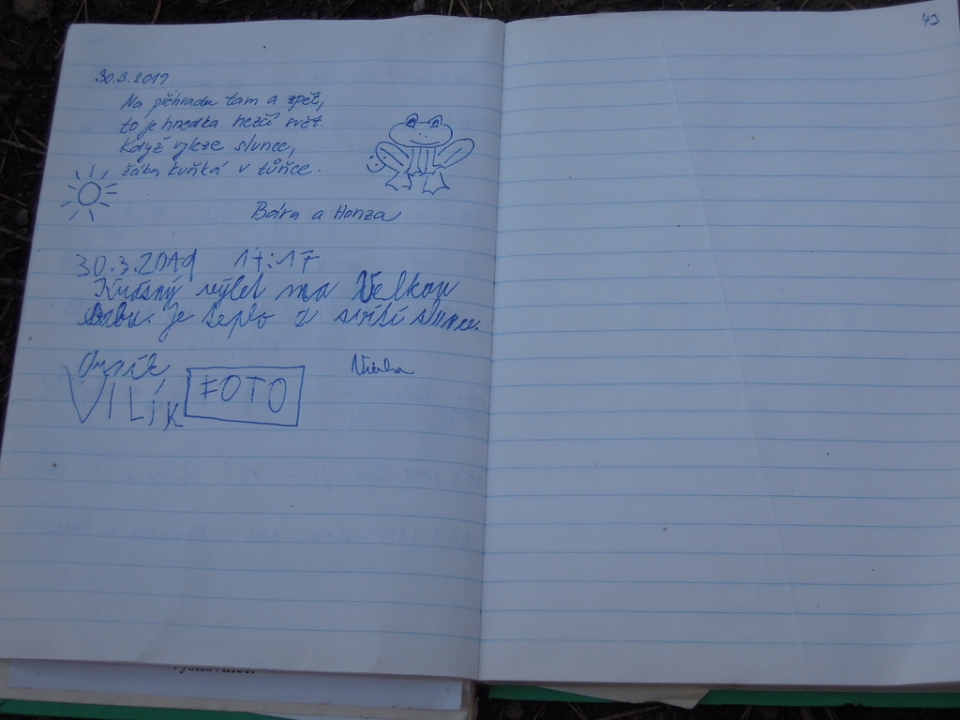 30.3.2019
Na přehradu tam a zpět,
to je hnedka hezčí svět.
Když vyleze slunce,
žába kuňká v tůňce.
Bára a Honza
30.3.2019 14:17
Krásný výlet na Velkou
je teplo a svítí slunce.
VILÍK FOTO
43